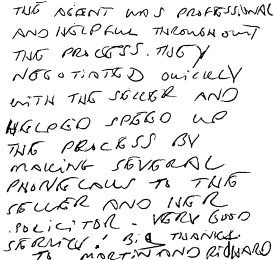 THE AGENT WAS PROFESSIONAL
AND HELPFUL THROUGHOUT
THE PROCESS. THEY
NEGOTIATED QUICKLY
WITH THE SELLER AND
HELPED SPEED UP
THE PROCESS BY
MAKING SEVERAL
PHONE CALLS TO THE
SELLER AND HER
SOLICITOR - VERY GOOD
SERVICE! BIG THANKS
TO MARTIN AND RICHARD